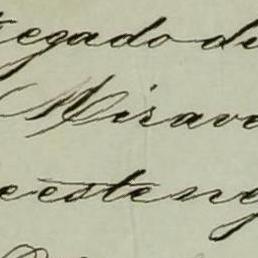 egado de
Mirav
e esteng